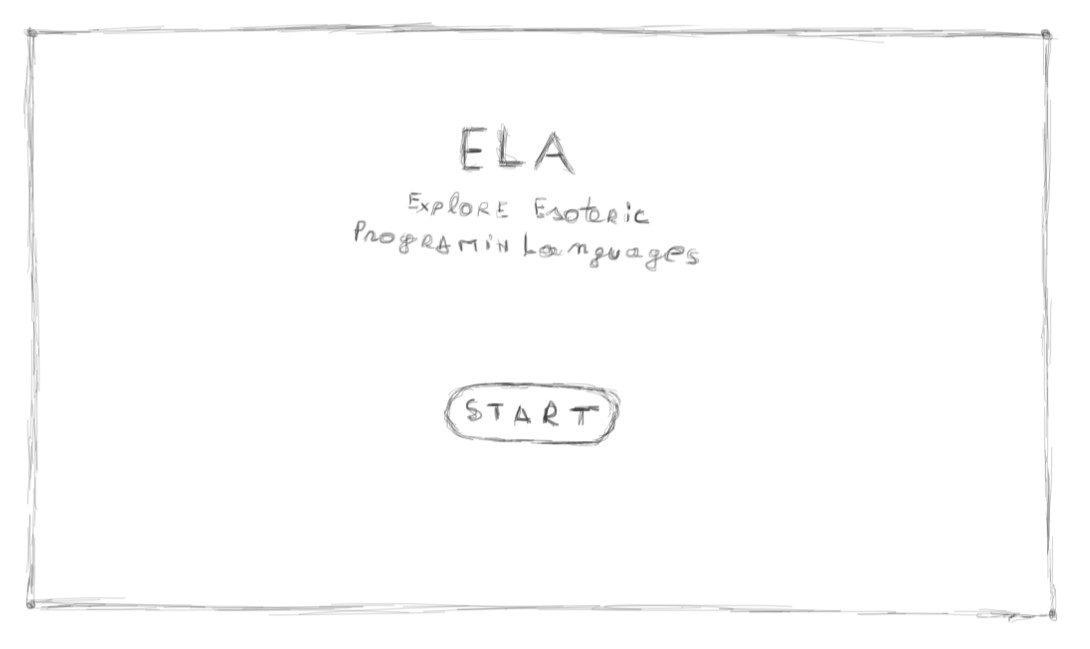 ELA
Explore Esoteric
Programin Languages
START